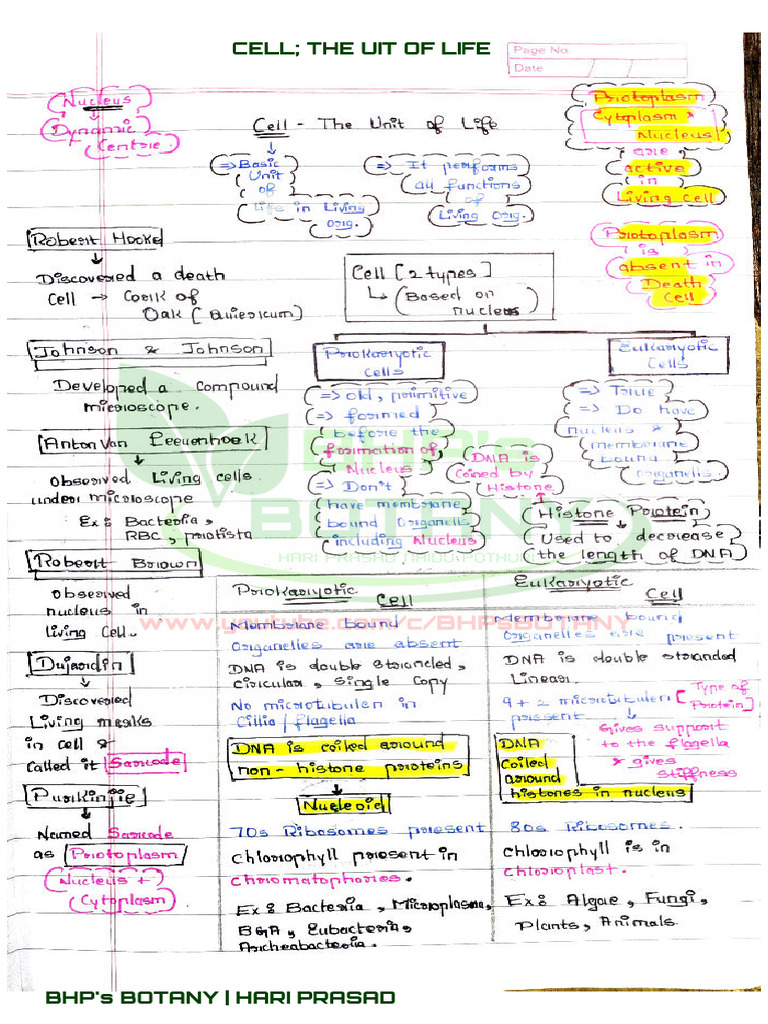 CELL; THE UIT OF LIFE
Page No.
Date
Nucleus
Dynamic
Centre
Cell - The Unit of Life
⇒ Basic
Unit
of
Life in Living
Orig.
⇒ It performs
all functions
of
Living Orig.
Protoplasm
Cytoplasm &
Nucleus
are
active
in
Living cell
Protoplasm
is
absent in
Death
Cell
Robert Hooke
Discovered a death
cell → Cork of
Oak [Quiercum]
Cell [2 types]
↳ (Based on
nucleus)
Johnson & Johnson
Developed a compound
microscope.
Anton Van Leeuenhoek
observed Living cells
under microscope
Ex: Bacteria,
RBC, protista
Prokaryotic
Cells
⇒ old, primitive
⇒ formed
before the
formation of
Nucleus
⇒ Don't
have membrane
bound Organells
including Nucleus
Eukaryotic
Cells
⇒ True
⇒ Do have
nucleus &
membrane
bound
Organells.
DNA is
Coined by
Histone
Histone Protein
Used to decrease
the length of DNA
BHP's
BOTANY
HARI PRASAD NAIDU POTHU
www.youtube.com/c/BHPsBOTANY
Robert Brown
observed
nucleus in
living cell.
Dujardin
Discovered
Living masks
in cell &
called it Sarcode
Purkinjie
Named Sarcode
as Protoplasm
Nucleus +
Cytoplasm
Prokaryotic
Cell
Membrane bound
Organelles are absent
DNA is double stranded,
circular, Single Copy
No microtubulen in
Cillia / flagella
DNA is coiled around
non-histone proteins
Nucleoid
70s Ribosomes present
chlorophyll present in
chromatophores.
Ex: Bacteria, Microplasma,
BGA, Eubacteria,
Archeabacteria.
Eukaryotic
Cell
Membrane bound
Organelles are present
DNA is double stranded
Linear.
9 + 2 microtubulen [Type of
Protein]
present
Gives support
to the flagella
& gives
stiffness
DNA
Coiled
around
histones in nucleus
80s Ribosomes.
chlorophyll is in
chloroplast.
Ex: Algae, Fungi,
Plants, Animals.
BHP's BOTANY | HARI PRASAD